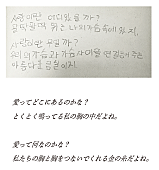 사랑이란 어디있을까?
뛰는 나의 가슴속에 있지.
사랑이란 무얼까?
우리의 가슴과 가슴사이를 연결해 주는
아름다운 금실이지.
愛ってどこにあるのかな?
とくとく鳴ってる私の胸の中だよね。
愛って何なのかな?
私たちの胸と胸をつないでくれる金の糸だよね。